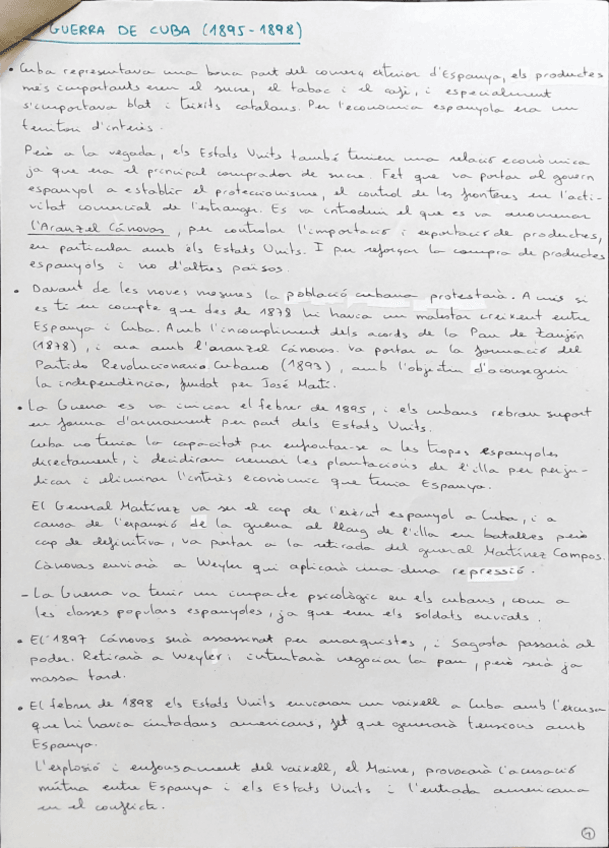 GUERRA DE CUBA (1895-1898)
• Cuba representava una bona part del comerç exterior d'Espanya, els productes
més importants eren el sucre, el tabac i el cafè, i especialment
s'importava blat i teixits catalans. Per l'economia espanyola era un
territori d'interès.
Però a la vegada, els Estats Units també tenien una relació econòmica
ja que era el principal comprador de sucre. Fet que va portar al govern
espanyol a establir el proteccionisme, el control de les fronteres en l'acti-
vitat comercial de l'estranger. Es va introduir el que es va anomenar
l'Aranzel Cánovas, per controlar l'importació i exportació de productes,
en particular amb els Estats Units. I per reforçar la compra de productes
espanyols i no d'altres països.
• Davant de les noves mesures la població cubana protestarà. A més si
es té en compte que des de 1878 hi havia un malestar creixent entre
Espanya i Cuba. Amb l'incompliment dels acords de la Pau de Zanjón
(1878), i ara amb l'aranzel Cánovas. Va portar a la formació del
Partido Revolucionario Cubano (1893), amb l'objectiu d'aconseguir
la independència, fundat per José Martí.
• La Guerra es va iniciar el febrer de 1895, i els cubans rebran suport
en forma d'armament per part dels Estats Units.
Cuba no tenia la capacitat per enfrontar-se a les tropes espanyoles
directament, i decidiran cremar les plantacions de l'illa per perju-
dicar i eliminar l'interès econòmic que tenia Espanya.
El General Martínez va ser el cap de l'exèrcit espanyol a Cuba, i a
causa de l'expansió de la guerra al llarg de l'illa en batalles però
cap de definitiva, va portar a la retirada del general Martínez Campos.
Cánovas enviarà a Weyler qui aplicarà una dura repressió.
- La Guerra va tenir un impacte psicològic en els cubans, com a
les classes populars espanyoles, ja que eren els soldats enviats.
• El 1897 Cánovas serà assassinat per anarquistes, i Sagasta passarà al
poder. Retirarà a Weyler i intentarà negociar la pau, però serà ja
massa tard.
• El febrer de 1898 els Estats Units enviaran un vaixell a Cuba amb l'excusa
que hi havia ciutadans americans, fet que generarà tensions amb
Espanya.
L'explosió i enfonsament del vaixell, el Maine, provocarà l'acusació
mútua entre Espanya i els Estats Units i l'entrada americana
en el conflicte.
1